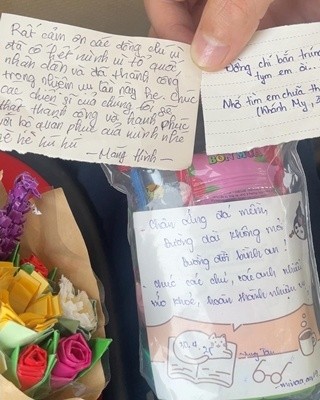 Rất cảm ơn các đồng chí vì
đã cố hết mình vì tổ quốc
nhân dân và đã thành công
trong nhiệm vụ lần này he. Chúc
các chiến sĩ của chúng tôi sẽ
thật thành công và hạnh phúc
với bộ quân phục của mình nhe
hê hê hu hú
- Măng Hình -
Đồng chí bắn trúng
tym em òi...
Nhớ tìm em chưa
(Khánh My, 3
BON
Chân cứng đá mềm,
Đường dài không mỏi
Đường đời bình an!
Chúc các chú, các anh nhiều
sức khoẻ, hoàn thành nhiệm vụ